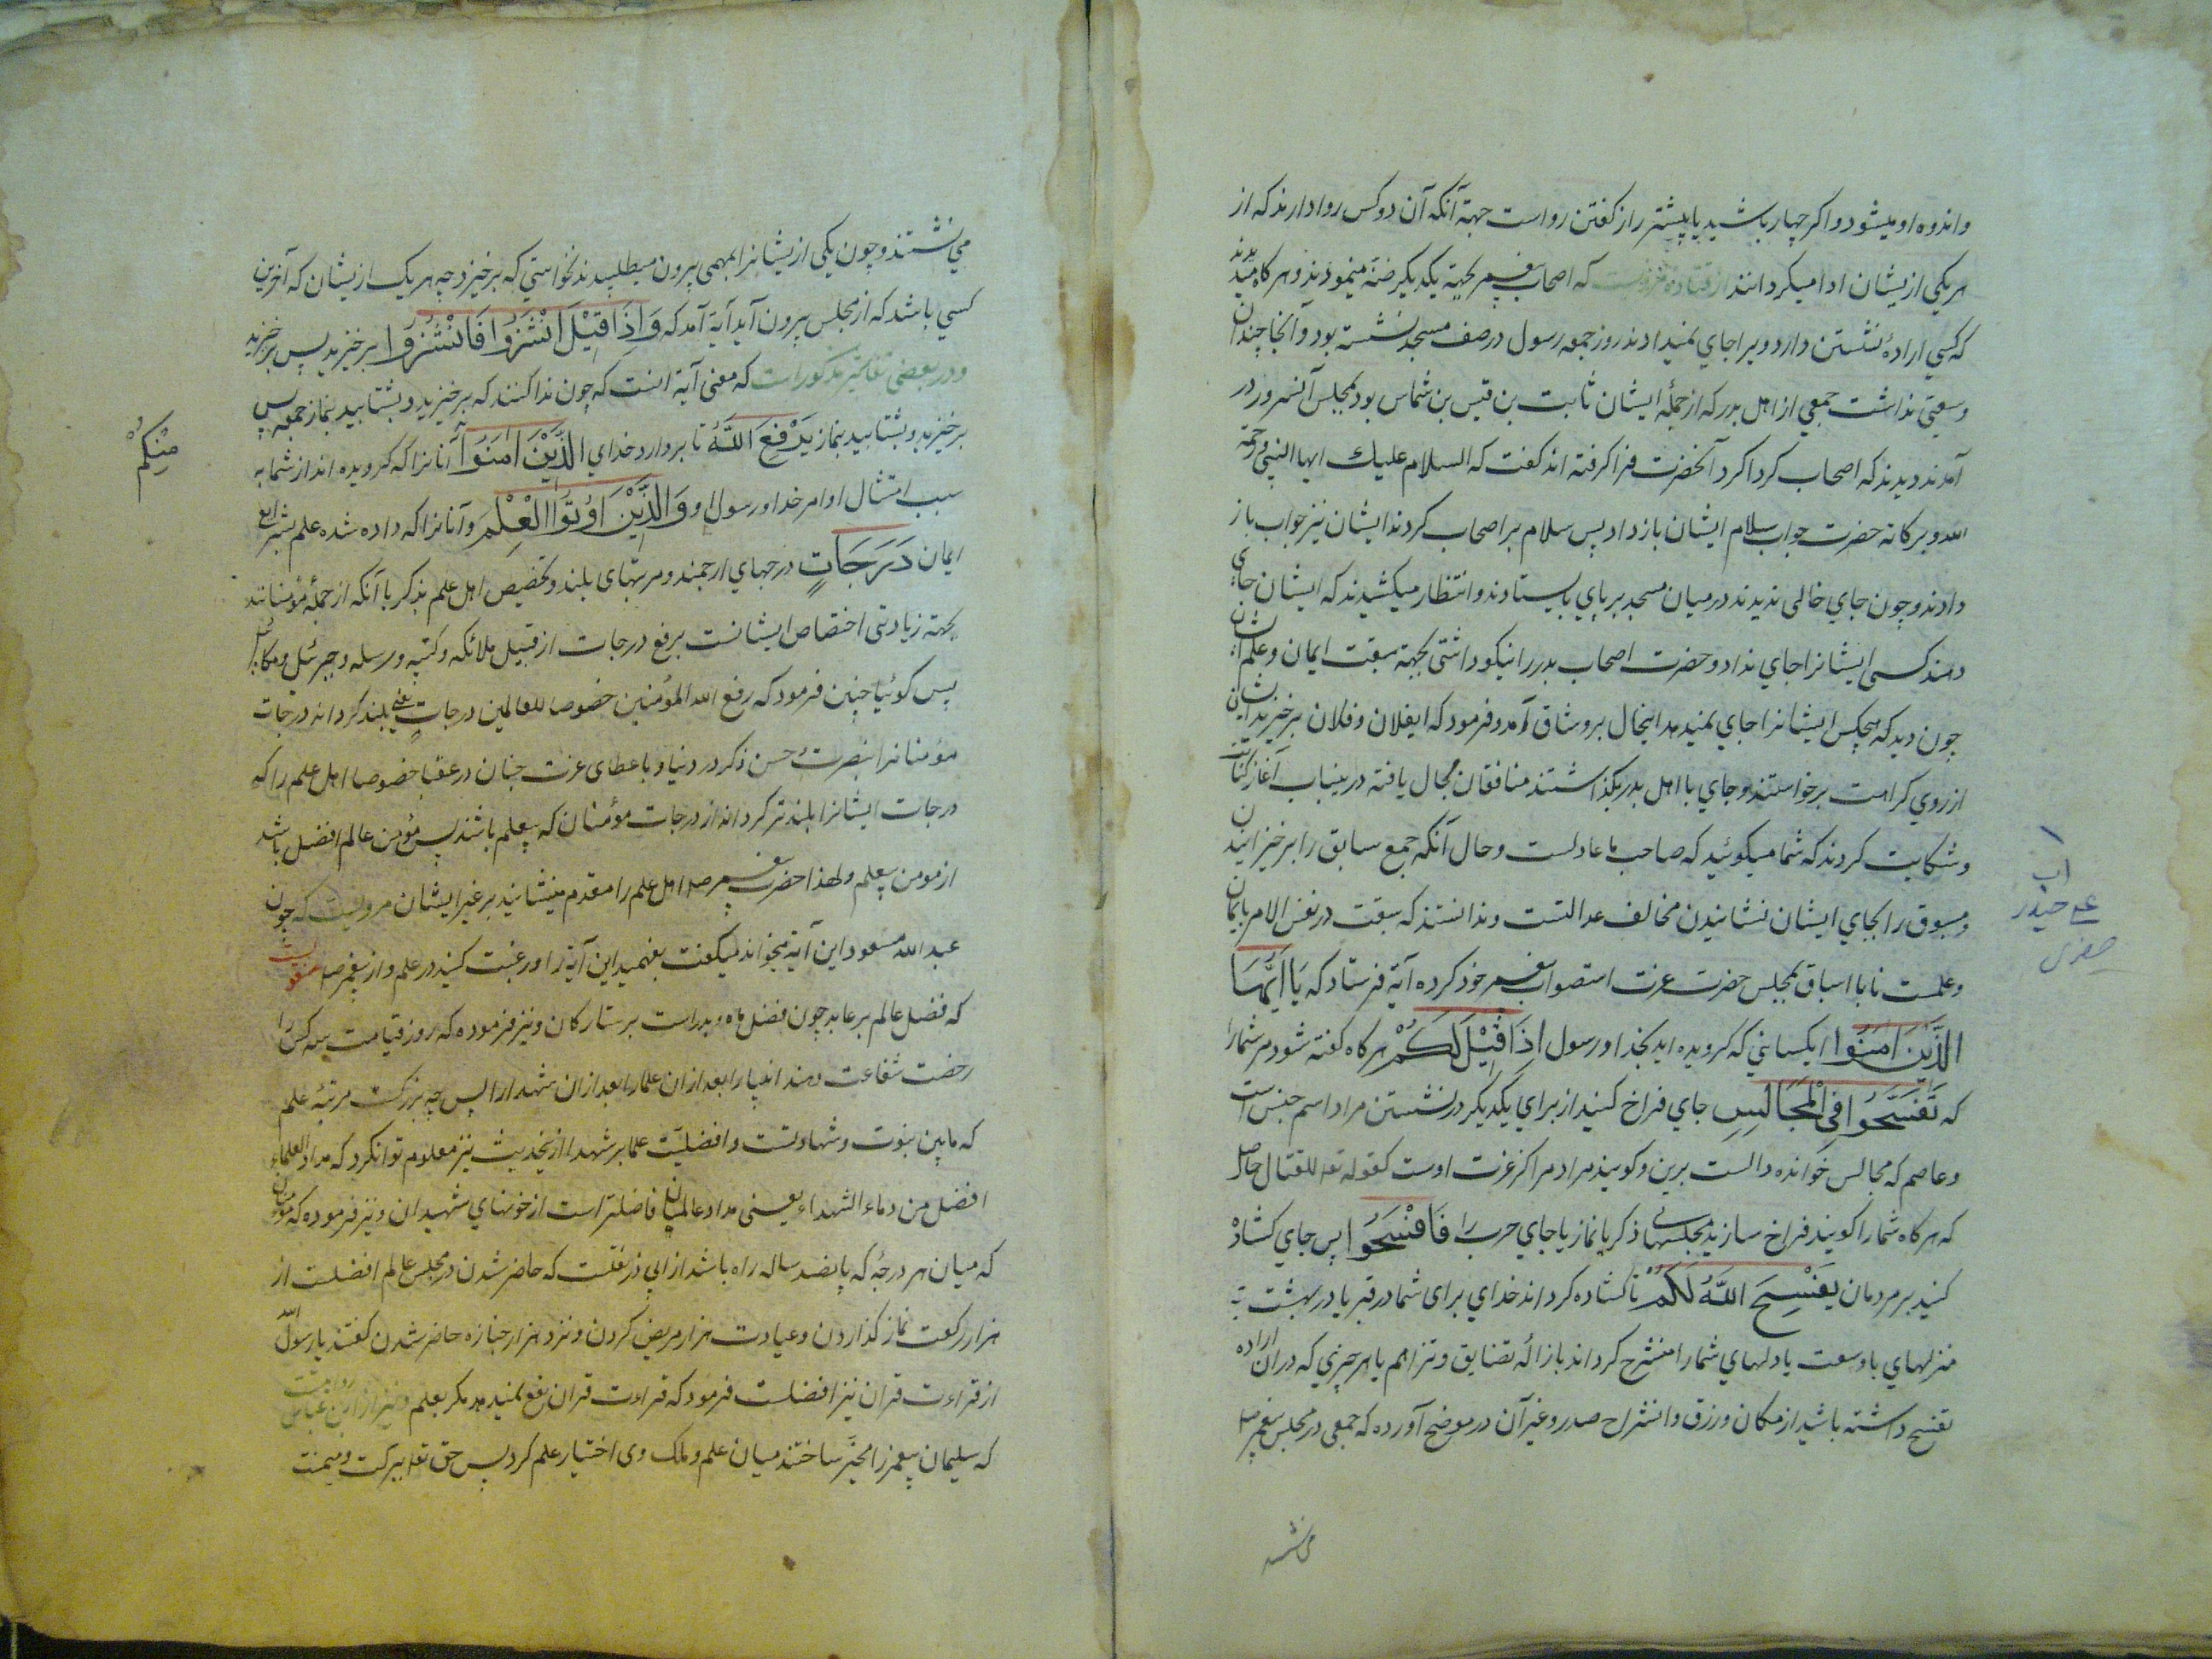 واندوه او میشود و اکر چهار باشید یا پیشتر راز کفتن رواست جهة آنکه آن دو کس روا دارند که از
هر یکی از یشان ادا میکردانند از قتاده مرویست که اصحاب پیغمبر بجهة یکدیکر ضنة مینمودند و هرکاه میدیدند
که کسی ارادهٔ نشستن دارد ویرا جاي نمیدادند روز جمعه رسول در صف مسجد نشسته بود و آنجا چندان
وسعتی نداشت جمعي از اهل بدر که از جملهٔ ایشان ثابت بن قیس بن شماس بود بمجلس آنسرور در
آمدند دیدند که اصحاب کرداکرد آنحضرت فرا کرفته اند کفت که السلام علیك ایها النبي ورحمة
الله وبرکاته حضرت جواب سلام ایشان باز داد پس سلام بر اصحاب کردند ایشان نیز جواب باز
دادند و چون جاي خالی ندیدند در میان مسجد بر پاي بایستادند و انتظار میکشیدند که ایشان جاي
دهند کسی ایشانرا جاي نداد و حضرت اصحاب بدر را نیکو داشتی بجهة سبقت ایمان و علم ایشان
چون دید که هیچکس ایشانرا جاي نمیدهد اینحال برو شاق آمد و فرمود که ایفلان و فلان برخیزید ایشان
از روي کراهت برخواستند و جاي با اهل بدر بکذاشتند منافقان مجال یافته درینباب آغاز
وشکایت کردند که شما میکوئید که صاحب ما عادلست وحال آنکه جمع سابق را برخیزانیدن
ومسبوق را بجاي ایشان نشانیدن مخالف عدالتست وندانستند که سبقت در نفس الامر بایمان
وعلمست نا با اسباق بمجلس حضرت عزت استصواب پیغمبر خود کرده آیة فرستاد که یَا اَیُّهَا
الَّذِیْنَ اٰمَنُوا ایکسانی که کرویده اید بخدا و رسول اِذَا قِیْلَ لَکُمْ هرکاه کفته شود مر شمارا
که تَفَسَّحُوا فِی الْمَجَالِسِ جاي فراخ کنید از براي یکدیکر در نشستن مراد اسم جنس است
وعاصم که مجالس خوانده دالست برین وکویند مراد مراکز غزت اوست کقوله تعه للقتال حاصل
که هرکاه شمارا کویند فراخ سازید مجلسهاي ذکر یا نماز یا جاي حرب را فَافْسَحُوا پس جاي کشاده
کنید بر مردمان یَفْسَحِ اللّٰهُ لَکُمْ تا کشاده کرداند خداي برای شما در قبر یا در بهشت
منزلهاي با وسعت یا دلهاي شمارا منشرح کرداند بازالهٔ تضایق و تزاحم یا هر چیزي که دران اراده
تفسح داشته باشید از مکان ورزق وانشراح صدر وغیر آن در موضح آورده که جمعی در مجلس پیغمبر صلعم
مي نشستند
علی حیدر
صفری
مي نشستند وچون یکی از یشانرا بمهمی بیرون میطلبیدند نخواستي که برخیزد چه هر یک از یشان که آخرین
کسی باشد که از مجلس بیرون آید آیة آمد که وَاِذَا قِیْلَ انْشُزُوا فَانْشُزُوا برخیزید پس برخیزید
ودر بعضی تفاسیر مذکور است که معنی آیة اینست که چون ندا کنند که برخیزید وبشتابید بنماز جمعه پس
برخیزید وبشتابید بنماز یَرْفَعِ اللّٰهُ تا بردارد خداي الَّذِیْنَ اٰمَنُوا آنانرا که کرویده اند از شما به
مِنْکُمْ
سبب امتثال اوامر خدا ورسول او وَالَّذِیْنَ اُوْتُوا الْعِلْمَ وآنانرا که داده شده علم بشرایع
ایمان دَرَجَاتٍ درجهاي ارجمند ومرتبهای بلند وتخصیص اهل علم بذکر با آنکه از جملهٔ مؤمنانند
بجهة زیادتی اختصاص ایشانست برفع درجات از قبیل ملائکه وکتبه ورسله وجبرئیل ومیکائیل
پس کوئیا چنین فرمود که رفع الله المؤمنین خصوصا للعالمین درجات یعنی بلند کرداند درجات
مؤمنانرا بنصرت وحسن ذکر در دنیا وباعطای عزت جنان در عقبا خصوصا اهل علم را که
درجات ایشانرا بلندتر کرداند از درجات مؤمنان که بیعلم باشند پس مؤمن عالم افضل باشد
از مومن بیعلم ولهذا حضرت پیغمبر صلعم اهل علم را مقدم مینشانید بر غیر ایشان مرویست که چون
عبد الله مسعود این آیة میخواند میکفت بفهمید این آیة را ورغبت کنید در علم واز پیغمبر صلعم منقولست
که فضل عالم بر عابد چون فضل ماه بدر است بر ستارکان ونیز فرموده که روز قیامت سه کس را
رخصت شفاعت دهند انبیا را بعد ازان علما را بعد ازان شهدا را پس چه بزرکست مرتبهٔ علم
که مابین نبوت وشهادتست وافضلیّت علما بر شهدا ازینحدیث نیز معلوم توان کرد که مداد العلماء
افضل من دماء الشهداء یعنی مداد عالمان فاضلتر است از خونهاي شهیدان ونیز فرموده که مؤمنان
که میان هر درجهٔ که پانصد ساله راه باشد از ابي ذر نقلست که حاضر شدن در مجلس عالم افضلست از
هزار رکعت نماز کذاردن وعیادت هزار مریض کردن ونزد هزار جنازه حاضر شدن کفتند یا رسول الله
از قراءت قران نیز افضلست فرمود که قراءت قران نفع نمیدهد مکر بعلم ونیز از ابن عباس روایتست
که سلیمان پیغمبر را مخیّر ساختند میان علم وملک وی اختیار علم کرد پس حق تعه ببرکت ومیمنت